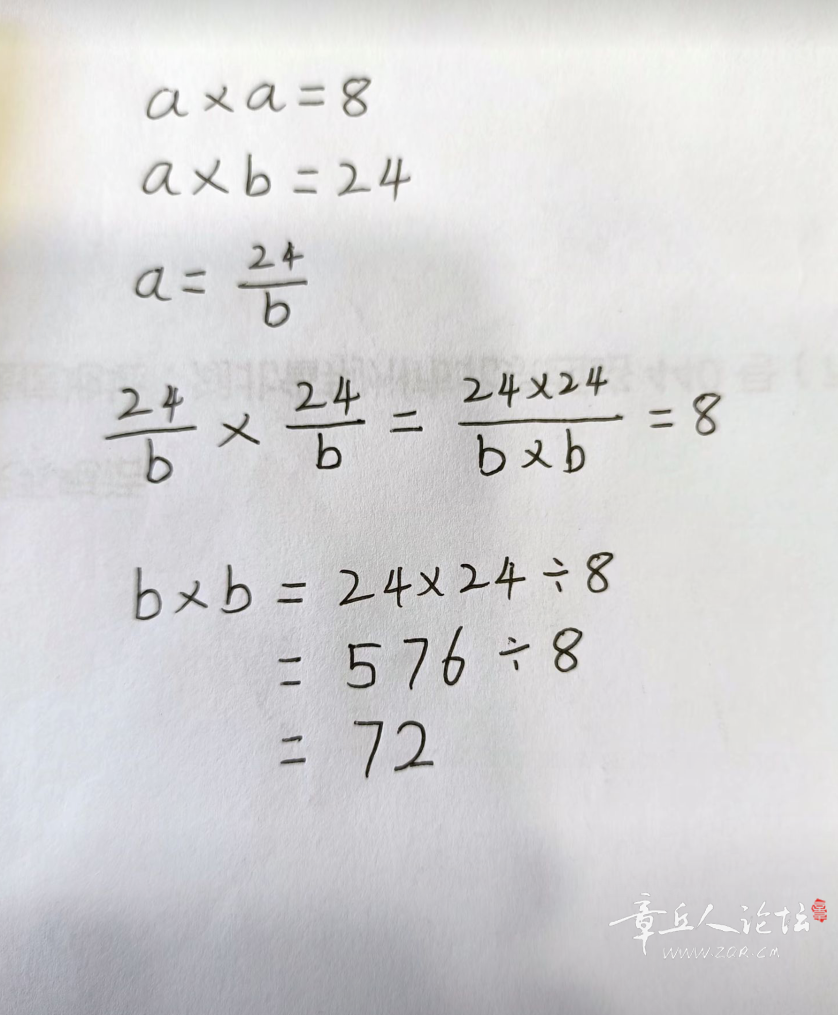 a×a=8
a×b=24
a=24/b
24/b × 24/b = 24×24/b×b = 8
b×b = 24×24÷8
= 576÷8
= 72
章丘人论坛
WWW.ZQR.CN